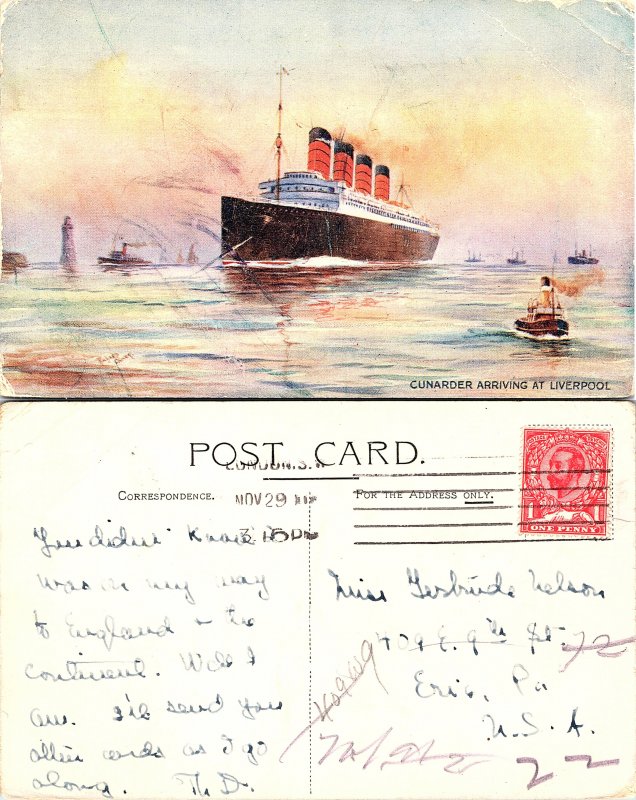 CUNARDER ARRIVING AT LIVERPOOL
POST CARD.
LONDON. S.W
CORRESPONDENCE.
NOV 29
FOR THE ADDRESS ONLY.
3.15 P
1 1
ONE PENNY
You didn't know I
was on my way
to England & the
continent. Well I
am. I'll send you
other cards as I go
along. Th. D.
Miss Gertrude Nelson
409 E. 9th St.
Erie, Pa
U.S.A.
72
22